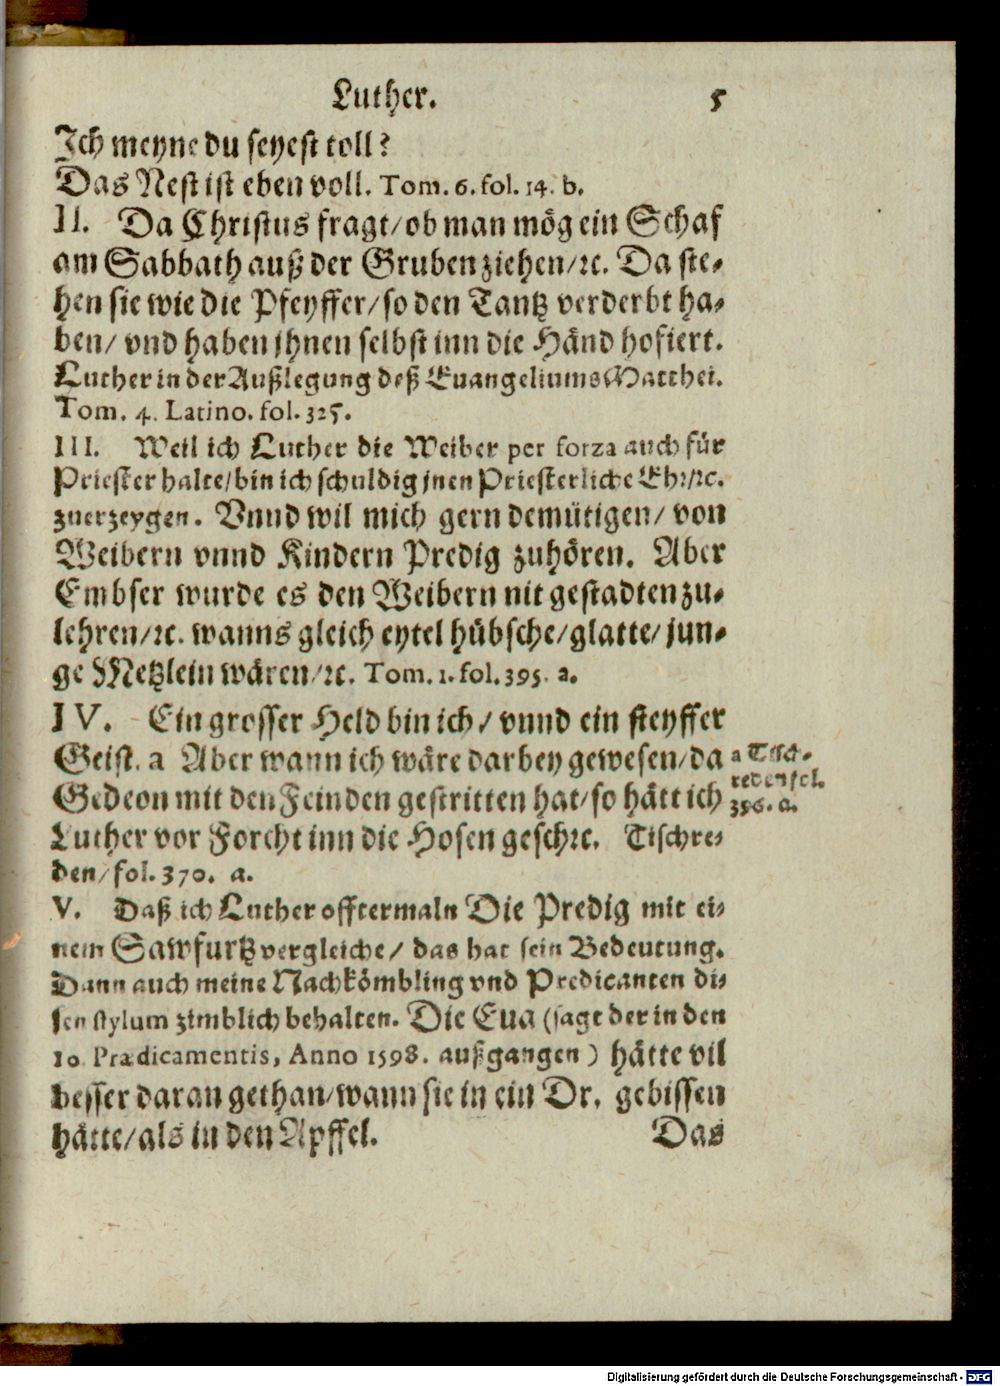 Luther. 5
Ich meyne du seyest toll?
Das Nest ist eben voll. Tom. 6. fol. 14. b.
II. Da Christus fragt/ ob man mög ein Schaf
am Sabbath auß der Gruben ziehen/ꝛc. Da ste-
hen sie wie die Pfeyffer/ so den Tantz verderbt ha-
ben/ vnd haben jhnen selbst inn die Händ hofiert.
Luther in der Außlegung deß Euangeliums Matthei.
Tom. 4. Latino. fol. 325.
III. Weil ich Luther die Weiber per forza auch für
Priester halte/ bin ich schuldig jnen Priesterliche Ehr/ꝛc.
zuerzeygen. Vnnd wil mich gern demütigen/ von
Weibern vnnd Kindern Predig zuhören. Aber
Embser wurde es den Weibern nit gestadten zu-
lehren/ꝛc. wanns gleich eytel hübsche/ glatte/ jun-
ge Metzlein wären/ꝛc. Tom. 1. fol. 395. a.
IV. Ein grosser Held bin ich/ vnnd ein steyffer
Geist. a Aber wann ich wäre darbey gewesen/ da
Gedeon mit den Feinden gestritten hat/ so hätt ich
Luther vor Forcht inn die Hosen geschꝛc. Tischre-
den/ fol. 370. a.
a Tisch-
reden fol.
396. a.
V. Daß ich Luther offtermaln Die Predig mit ei-
nem Sawfurtz vergleiche/ das hat sein Bedeutung.
Dann auch meine Nachkömbling vnd Predicanten di-
sen stylum zimblich behalten. Die Eua (sagt der in den
10 Prædicamentis, Anno 1598. außgangen) hätte vil
besser daran gethan/ wann sie in ein Dr. gebissen
hätte/ als in den Apffel. Das
Digitalisierung gefördert durch die Deutsche Forschungsgemeinschaft - DFG